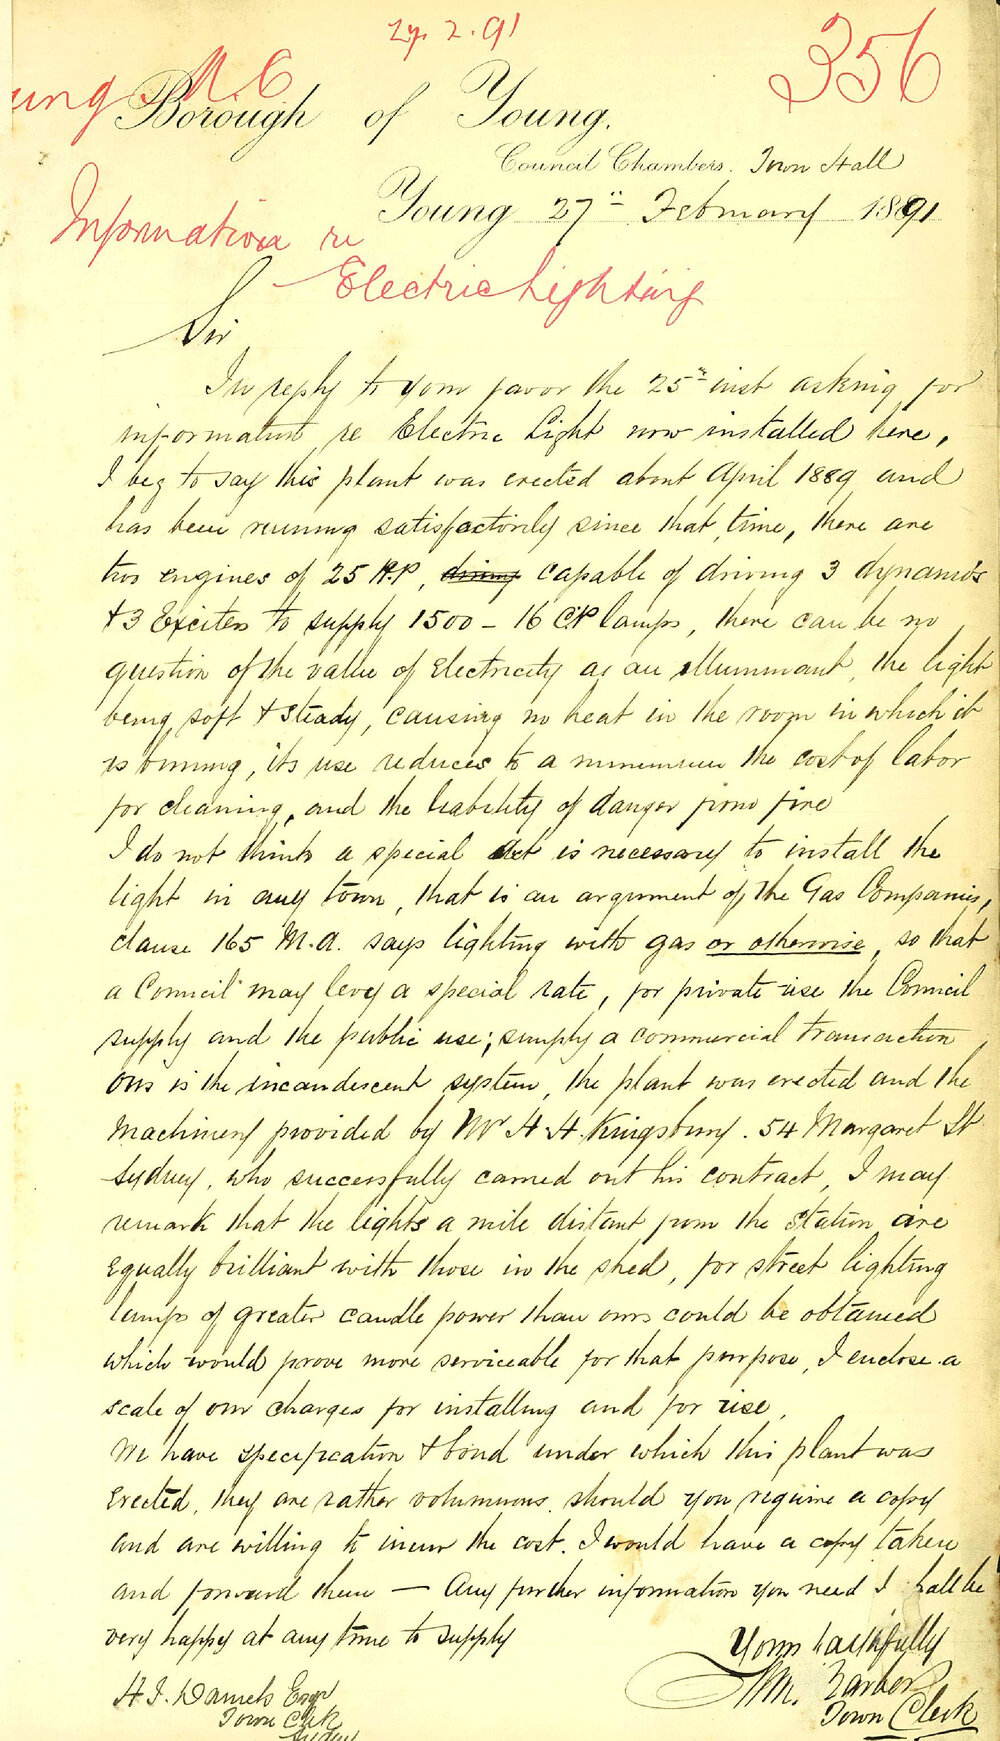 27.2.91
356
ung M.C
Borough of Young.
Council Chambers. Town Hall
Young 27th February 1891
Information re
Electric Lighting
Sir
In reply to your favor the 25th inst asking for
information re Electric Light now installed here,
I beg to say this plant was erected about April 1889 and
has been running satisfactorily since that time, there are
two engines of 25 H.P, driving capable of driving 3 dynamos
+ 3 Exciters to supply 1500 - 16 CP lamps, there can be no
question of the value of Electricity as an illuminant, the light
being soft + steady, causing no heat in the room in which it
is burning, its use reduces to a minimum the cost of labor
for cleaning, and the liability of danger from fire
I do not think a special Act is necessary to install the
light in any town, that is an argument of the Gas Companies,
clause 165 M.A. says lighting with gas or otherwise, so that
a Council may levy a special rate, for private use the Council
supply and the public use; simply a commercial transaction
ours is the incandescent system, the plant was erected and the
Machinery provided by Mr H. H. Kingsbury. 54 Margaret St
Sydney, who successfully carried out his contract, I may
remark that the lights a mile distant from the station are
equally brilliant with those in the shed, for street lighting
lamps of greater candle power than ours could be obtained
which would prove more serviceable for that purpose, I enclose a
scale of our charges for installing and for use,
We have specification + bond under which this plant was
Erected, they are rather voluminous, should you require a copy
and are willing to incur the cost. I would have a copy taken
and forward them — Any further information you need I shall be
very happy at any time to supply
Yours faithfully
Barber
Town Clerk
H. J. Daniels Esqr
Town Clk
Sydney